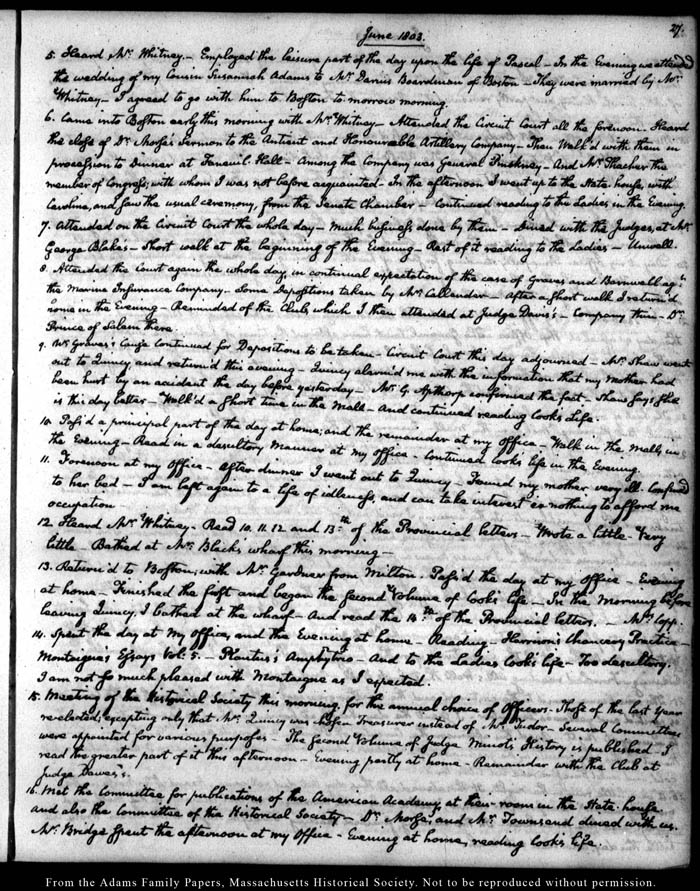 27.
June 1803.
5. Heard Mr. Whitney. – Employ'd the leisure part of the day upon the life of Pascal – In the Evening we attended
the wedding of my Cousin Susannah Adams to Mr. Darius Boardman of Boston – They were married by Mr.
Whitney – I agreed to go with him to Boston to morrow morning.
6. Came into Boston early this morning with Mr. Whitney – Attended the Circuit Court all the forenoon. Heard
the close of Dr. Morse's Sermon to the Antient and Honourable Artillery Company – Then Walk'd with them in
procession to Dinner at Faneuil-Hall – Among the Company was General Pinckney – And Mr. Thacher the
member of Congress, with whom I was not before acquainted – In the afternoon I went up to the State-house, with
Caroline, and saw the usual ceremony, from the Senate Chamber – Continued reading to the Ladies in the Evening.
7. Attended on the Circuit Court the whole day – Much business done by them – Dined with the Judges, at Mr.
George Blake's – Short walk at the beginning of the Evening – Rest of it reading to the Ladies – Unwell.
8. Attended the Court again the whole day, in continual expectation of the case of Graves and Barnwall agt.
the Marine Insurance Company – Some Depositions taken by Mr. Callender – After a short walk I return'd
home in the Evening – Reminded of the Club, which I then attended at Judge Davis's – Company there – Dr.
Prince of Salem there.
9. Mr. Graves's Cause Continued for Depositions to be taken – Circuit Court this day adjourned – Mr. Shaw went
out to Quincy and return'd this evening – Quincy alarm'd me with the information that my Mother had
been hurt by an accident the day before yesterday – Mr. G. Apthorp confirmed the fact – Shaw says she
is this day better – Walk'd a short time in the Mall – And continued reading Cook's Life.
10. Pass'd a principal part of the day at home, and the remainder at my office – Walk in the Mall, in
the Evening – Read in a desultory Manner at my office – Continued Cook's life in the Evening.
11. Forenoon at my Office – After dinner I went out to Quincy – Found my mother very ill. Confined
to her bed – I am left again to a life of idleness, and can take interest in nothing to afford me
occupation
12. Heard Mr. Whitney – Read 10. 11. 12 and 13th. of the Provincial letters – Wrote a little – Very
little – Bathed at Mr. Black's wharf this morning –
13. Return'd to Boston, with Mr. Gardner from Milton. Pass'd the day at my Office – Evening
at home – Finished the first and began the second Volume of Cook's life – In the Morning before
leaving Quincy, I bathed at the wharf – And read the 14th. of the Provincial letters. – Mr. Copp.
14. Spent the day at My Office, and the Evening at home – Reading – Harrison's Chancery Practice –
Montaigne's Essays Vol: 5. – Plautus's Amphytrio – And to the Ladies Cook's life – Too desultory.
I am not so much pleased with Montaigne as I expected.
15. Meeting of the Historical Society this morning, for the annual choice of Officers – Those of the last Year
re-elected; excepting only that Mr. Quincy was chosen Treasurer instead of Mr. Tudor – Several Committees
were appointed for various purposes – The second Volume of Judge Minot's History is published – I
read the greater part of it this afternoon – Evening partly at home – Remainder with the Club at
Judge Dawes's.
16. Met the Committee for publications of the American Academy, at their room in the State-house.
and also the Committee of the Historical Society – Dr. Morse, and Mr. Townsend dined with us.
Mr. Bridge spent the afternoon at my Office – Evening at home, reading Cook's life.
From the Adams Family Papers, Massachusetts Historical Society. Not to be reproduced without permission.